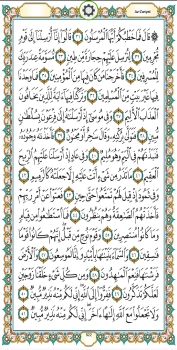 قَالَ فَمَا خَطْبُكُمْ أَيُّهَا الْمُرْسَلُونَ ٣١ قَالُوا إِنَّا أُرْسِلْنَا إِلَىٰ قَوْمٍ
مُّجْرِمِينَ ٣٢ لِنُرْسِلَ عَلَيْهِمْ حِجَارَةً مِّن طِينٍ ٣٣ مُّسَوَّمَةً عِندَ رَبِّكَ
لِلْمُسْرِفِينَ ٣٤ فَأَخْرَجْنَا مَن كَانَ فِيهَا مِنَ الْمُؤْمِنِينَ ٣٥ فَمَا وَجَدْنَا
فِيهَا غَيْرَ بَيْتٍ مِّنَ الْمُسْلِمِينَ ٣٦ وَتَرَكْنَا فِيهَا آيَةً لِّلَّذِينَ يَخَافُونَ
الْعَذَابَ الْأَلِيمَ ٣٧ وَفِي مُوسَىٰ إِذْ أَرْسَلْنَاهُ إِلَىٰ فِرْعَوْنَ بِسُلْطَانٍ
مُّبِينٍ ٣٨ فَتَوَلَّىٰ بِرُكْنِهِ وَقَالَ سَاحِرٌ أَوْ مَجْنُونٌ ٣٩ فَأَخَذْنَاهُ وَجُنُودَهُ
فَنَبَذْنَاهُمْ فِي الْيَمِّ وَهُوَ مُلِيمٌ ٤٠ وَفِي عَادٍ إِذْ أَرْسَلْنَا عَلَيْهِمُ الرِّيحَ
الْعَقِيمَ ٤١ مَا تَذَرُ مِن شَيْءٍ أَتَتْ عَلَيْهِ إِلَّا جَعَلَتْهُ كَالرَّمِيمِ ٤٢
وَفِي ثَمُودَ إِذْ قِيلَ لَهُمْ تَمَتَّعُوا حَتَّىٰ حِينٍ ٤٣ فَعَتَوْا عَنْ أَمْرِ رَبِّهِمْ
فَأَخَذَتْهُمُ الصَّاعِقَةُ وَهُمْ يَنظُرُونَ ٤٤ فَمَا اسْتَطَاعُوا مِن قِيَامٍ
وَمَا كَانُوا مُنتَصِرِينَ ٤٥ وَقَوْمَ نُوحٍ مِّن قَبْلُ إِنَّهُمْ كَانُوا قَوْمًا
فَاسِقِينَ ٤٦ وَالسَّمَاءَ بَنَيْنَاهَا بِأَيْيدٍ وَإِنَّا لَمُوسِعُونَ ٤٧ وَالْأَرْضَ
فَرَشْنَاهَا فَنِعْمَ الْمَاهِدُونَ ٤٨ وَمِن كُلِّ شَيْءٍ خَلَقْنَا زَوْجَيْنِ
لَعَلَّكُمْ تَذَكَّرُونَ ٤٩ فَفِرُّوا إِلَى اللَّهِ إِنِّي لَكُم مِّنْهُ نَذِيرٌ مُّبِينٌ ٥٠
وَلَا تَجْعَلُوا مَعَ اللَّهِ إِلَٰهًا آخَرَ إِنِّي لَكُم مِّنْهُ نَذِيرٌ مُّبِينٌ ٥١